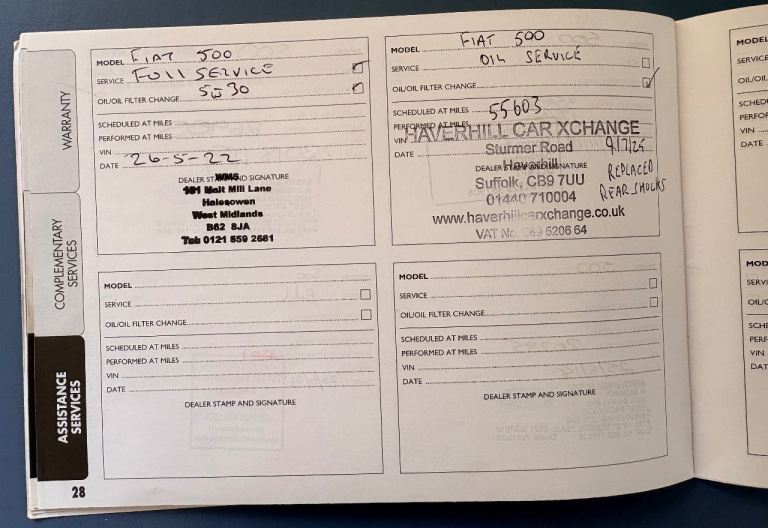 WARRANTY
COMPLEMENTARY
SERVICES
ASSISTANCE
SERVICES
28
MODEL FIAT 500
SERVICE FULL SERVICE
OIL/OIL FILTER CHANGE 5W30
SCHEDULED AT MILES
PERFORMED AT MILES
VIN
DATE 26-5-22
DEALER STAMP AND SIGNATURE
WMS
181 Malt Mill Lane
Halesowen
West Midlands
B62 8JA
Tel: 0121 559 2681
MODEL FIAT 500
SERVICE OIL SERVICE
OIL/OIL FILTER CHANGE
SCHEDULED AT MILES 55603
PERFORMED AT MILES
VIN
HAVERHILL CAR XCHANGE
Sturmer Road
DATE 9/7/25
Haverhill
DEALER STAMP AND SIGNATURE
REPLACED
REAR SHOCKS
Suffolk, CB9 7UU
01440 710004
www.haverhillcarxchange.co.uk
VAT No. 5206 64
MODEL
SERVICE
OIL/OIL FILTER CHANGE
SCHEDULED AT MILES
PERFORMED AT MILES
VIN
DATE
DEALER STAMP AND SIGNATURE
MODEL
SERVICE
OIL/OIL FILTER CHANGE
SCHEDULED AT MILES
PERFORMED AT MILES
VIN
DATE
DEALER STAMP AND SIGNATURE
MODEL
SERVICE
VIN
DATE